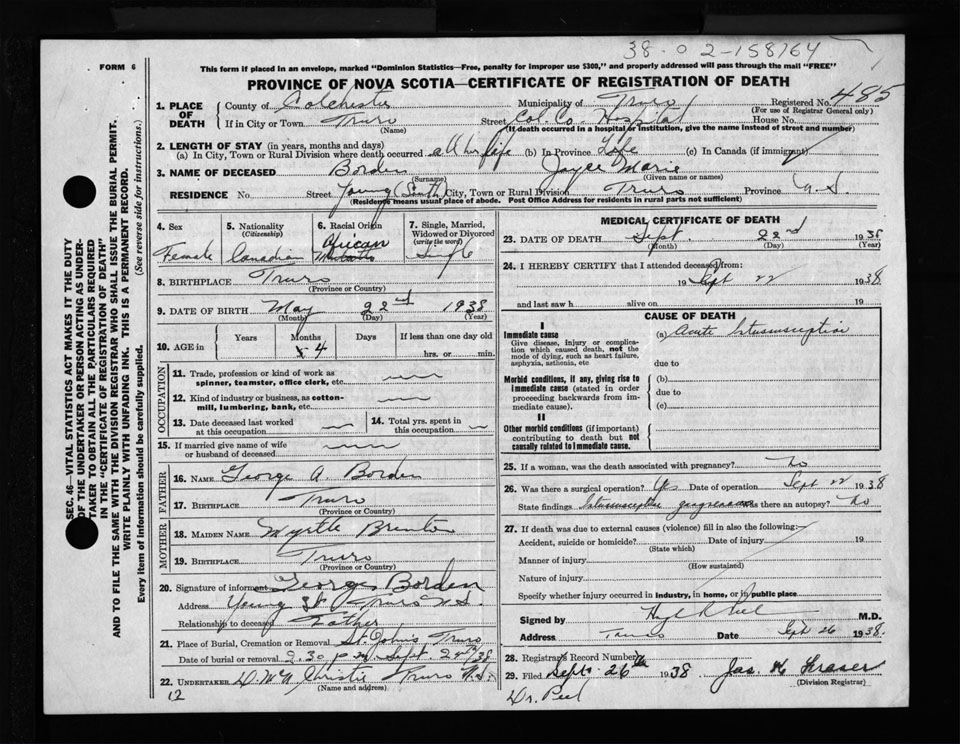 38-02-158764
FORM 6
This form if placed in an envelope, marked "Dominion Statistics—Free, penalty for improper use $300," and properly addressed will pass through the mail "FREE"
PROVINCE OF NOVA SCOTIA—CERTIFICATE OF REGISTRATION OF DEATH
1. PLACE OF DEATH
County of Colchester Municipality of Truro Registered No. 485
(For use of Registrar General only)
If in City or Town Truro Street Col. Co. Hospital House No.
(Name) (If death occurred in a hospital or institution, give the name instead of street and number)
2. LENGTH OF STAY (in years, months and days)
(a) In City, Town or Rural Division where death occurred all her life (b) In Province Life (c) In Canada (if immigrant)
3. NAME OF DECEASED Borden Joyce Marie
(Surname) (Given name or names)
RESIDENCE No. Street Young (South) City, Town or Rural Division Truro Province N.S.
(Residence means usual place of abode. Post Office Address for residents in rural parts not sufficient)
4. Sex
Female
5. Nationality
(Citizenship)
Canadian
6. Racial Origin
African
Mulatto
7. Single, Married, Widowed or Divorced
(write the word)
Single
8. BIRTHPLACE Truro
(Province or Country)
9. DATE OF BIRTH May 22nd 1938
(Month) (Day) (Year)
10. AGE in
Years Months Days If less than one day old
4 hrs. or min.
OCCUPATION
11. Trade, profession or kind of work as spinner, teamster, office clerk, etc.
12. Kind of industry or business, as cotton-mill, lumbering, bank, etc.
13. Date deceased last worked at this occupation
14. Total yrs. spent in this occupation
15. If married give name of wife or husband of deceased
FATHER
16. NAME George A. Borden
17. BIRTHPLACE Truro
(Province or Country)
MOTHER
18. MAIDEN NAME Myrtle Brenton
19. BIRTHPLACE Truro
(Province or Country)
20. Signature of informant George Borden
Address Young St Truro N.S.
Relationship to deceased Father
21. Place of Burial, Cremation or Removal St. Johns Truro
Date of burial or removal 2.30 p.m. Sept. 24th/38
22. UNDERTAKER Christie Truro N.S.
(Name and address)
12
MEDICAL CERTIFICATE OF DEATH
23. DATE OF DEATH Sept. 22nd 1938
(Month) (Day) (Year)
24. I HEREBY CERTIFY that I attended deceased from:
19 Sept 22 1938
and last saw h alive on 19
CAUSE OF DEATH
I
Immediate cause
Give disease, injury or complication which caused death, not the mode of dying, such as heart failure, asphyxia, asthenia, etc
(a) Acute Intussusception
due to
Morbid conditions, if any, giving rise to immediate cause (stated in order proceeding backwards from immediate cause).
(b)
due to
(c)
II
Other morbid conditions (if important) contributing to death but not causally related to immediate cause.
25. If a woman, was the death associated with pregnancy? No
26. Was there a surgical operation? Yes Date of operation Sept 22 1938
State findings was there an autopsy? No
27. If death was due to external causes (violence) fill in also the following:—
Accident, suicide or homicide? Date of injury 19
(State which)
Manner of injury
(How sustained)
Nature of injury
Specify whether injury occurred in industry, in home, or in public place
Signed by M.D.
Address Truro Date Sept 26 1938.
28. Registrar's Record Number
29. Filed Sept. 26th 1938 Jas. H. Fraser
(Division Registrar)
Dr. Peel
SEC. 46—VITAL STATISTICS ACT MAKES IT THE DUTY
OF THE UNDERTAKER OR PERSON ACTING AS UNDER-
TAKER TO OBTAIN ALL THE PARTICULARS REQUIRED
IN THE "CERTIFICATE OF REGISTRATION OF DEATH"
AND TO FILE THE SAME WITH THE DIVISION REGISTRAR WHO SHALL ISSUE THE BURIAL PERMIT.
WRITE PLAINLY WITH UNFADING INK. THIS IS A PERMANENT RECORD.
Every item of information should be carefully supplied. (See reverse side for instructions.)